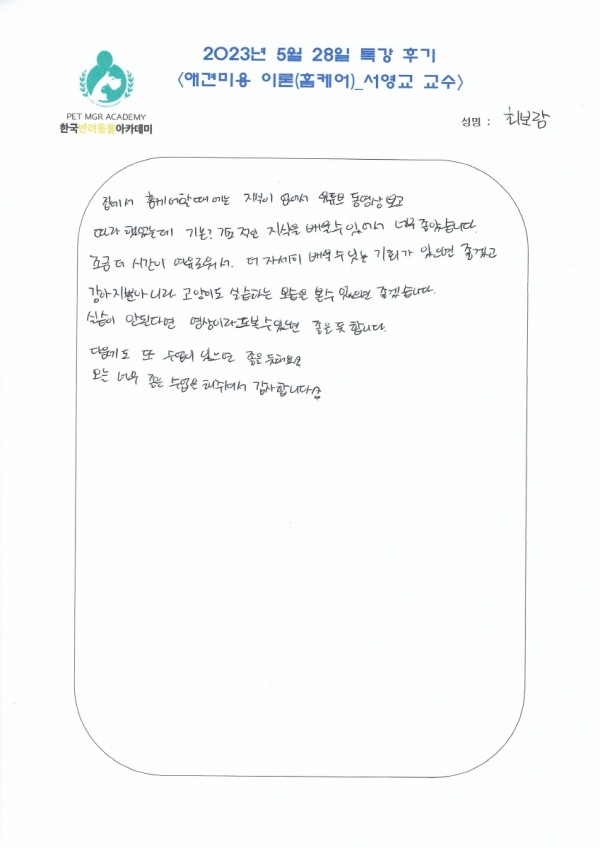 2023년 5월 28일 특강 후기
<애견미용 이론(홈케어)_서영교 교수>
PET MGR ACADEMY
한국반려동물아카데미
성명 : 최보람
집에서 홈케어할때에는 지식이 없어서 유튜브 동영상보고
따라 했었는데 기본? 기초 적인 지식을 배울수 있어서 너무 좋았습니다.
조금 더 시간이 여유로워서. 더 자세히 배울수 있는 기회가 있으면 좋겠고
강아지뿐아니라 고양이도 실습하는 모습을 볼수 있으면 좋겠습니다.
실습이 안된다면 영상이라도볼수있으면 좋을듯 합니다.
다음에도 또 수업이 있으면 좋을듯해요
오늘 너무 좋은 수업을 해주셔서 감사합니다